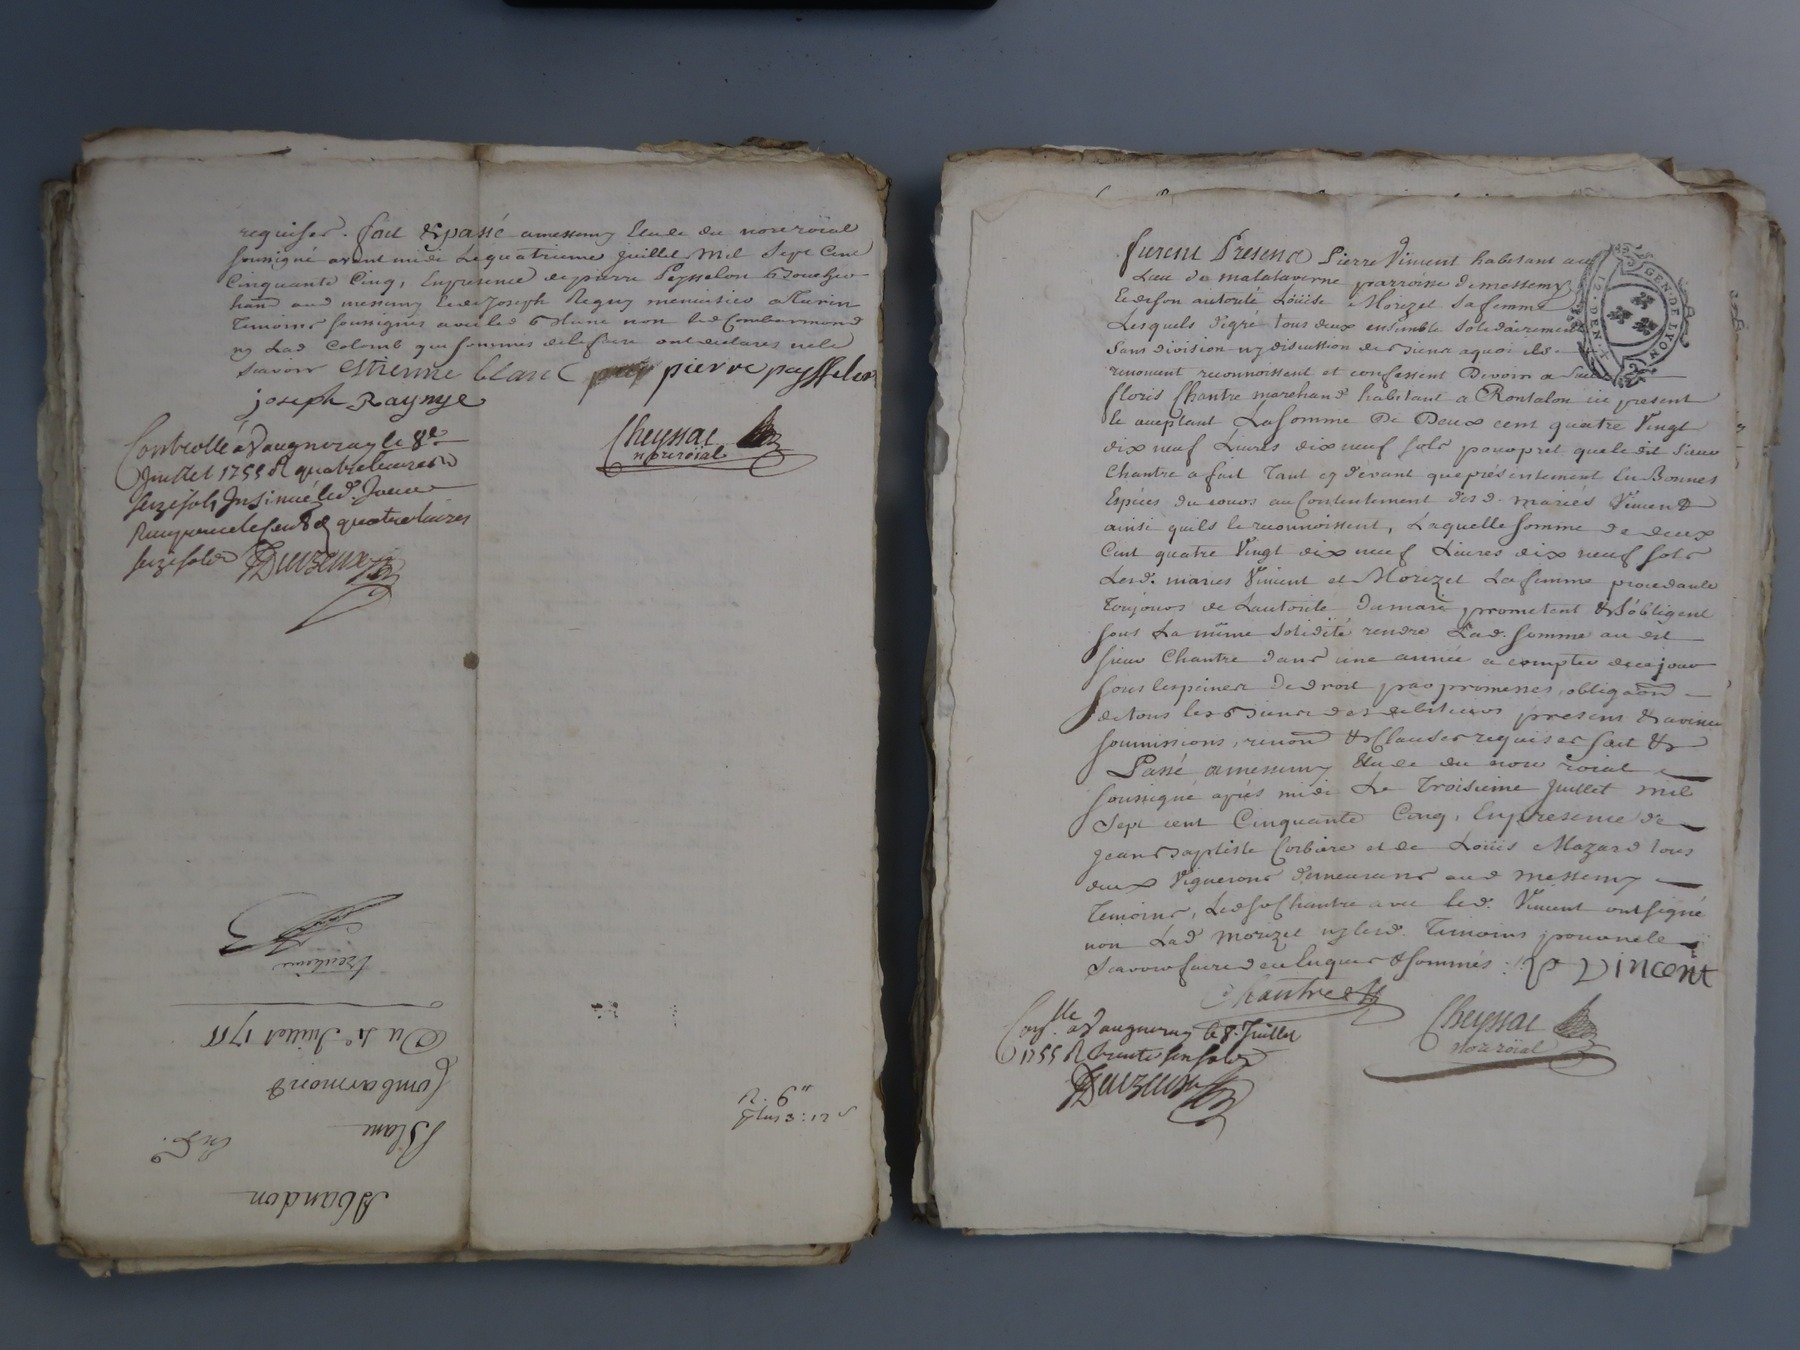 requises. fait & passé a messimy Etude du no.re roïal
soussigné avant midi Le quatrieme Juillet Mil Sept Cent
Cinquante Cinq, En presence de pierre Peysselon Boucher
hab. aud messimy Et de Joseph Regny menuisier a Thurin
Temoins soussignés avec led. Blanc non led Combarmond
ny Lad Colomb que sommes de le faire ont declarés ne le
Scavoir estienne blanc pierre paysselon
joseph Raynye
Cheyssac
no.re roïal
Controllé a Vaugneray le 8e
Juillet 1755 R quatre livres
seize sols Insinué led. Jour
Reçu pareille somme de quatre livres
seize sols Duvzeux
Abandon
Blanc
Combarmond
Du 4e Juillet 1755
furent Presens Pierre Vincent habitant au
Lieu de malataverne parroisse de messimy
Et de son autorité Loüise Morizel sa femme
Lesquels de gré tous deux ensemble solidairement
Sans division ny discussion de Biens a quoi ils
renoncent reconnoissent et confessent Devoir a Sieur
floris Chantre marchand habitant a Rontalon icy present
& acceptant La somme De Deux cent quatre Vingt
dix neuf Livres dix neuf sols pour pret que le dit Sieur
Chantre a fait Tant cy devant que présentement En Bonnes
Espèces du cours au Contentement desd. mariés Vincent
ainsi quils le reconnoissent, Laquelle somme de deux
Cent quatre Vingt dix neuf Livres dix neuf sols
Lesd. mariés Vincent et Morizel La femme procedante
Toujours de Lautorité du mari promettent & s'obligent
sous La même solidité rendre Lad. somme au dit
sieur Chantre dans une année a compter de ce jour
sous les peines De droit par promesses, obliga.on
de tous les Biens des debiteurs presens & avenir
soumissions, renon.on & Clauses requises fait &
Passé a messimy Etude du no.re roïal
soussigné après midi Le Troisieme Juillet mil
Sept cent Cinquante Cinq, En presence de
Jean Baptiste Corbiere et de Loüis Mazard tous
deux Vignerons demeurans aud messimy
Temoins, Led. Sr Chantre avec led. Vincent ont signé
non Lad Morizel ny lesd. Temoins pour ne le
Scavoir faire de ce Enquis & sommés. P Vincent
Chantre
Cheyssac
no.re roïal
Con.lle a Vaugneray le 8e. Juillet
1755 R trente six sols
Duvzeux
GEN. DE LYON